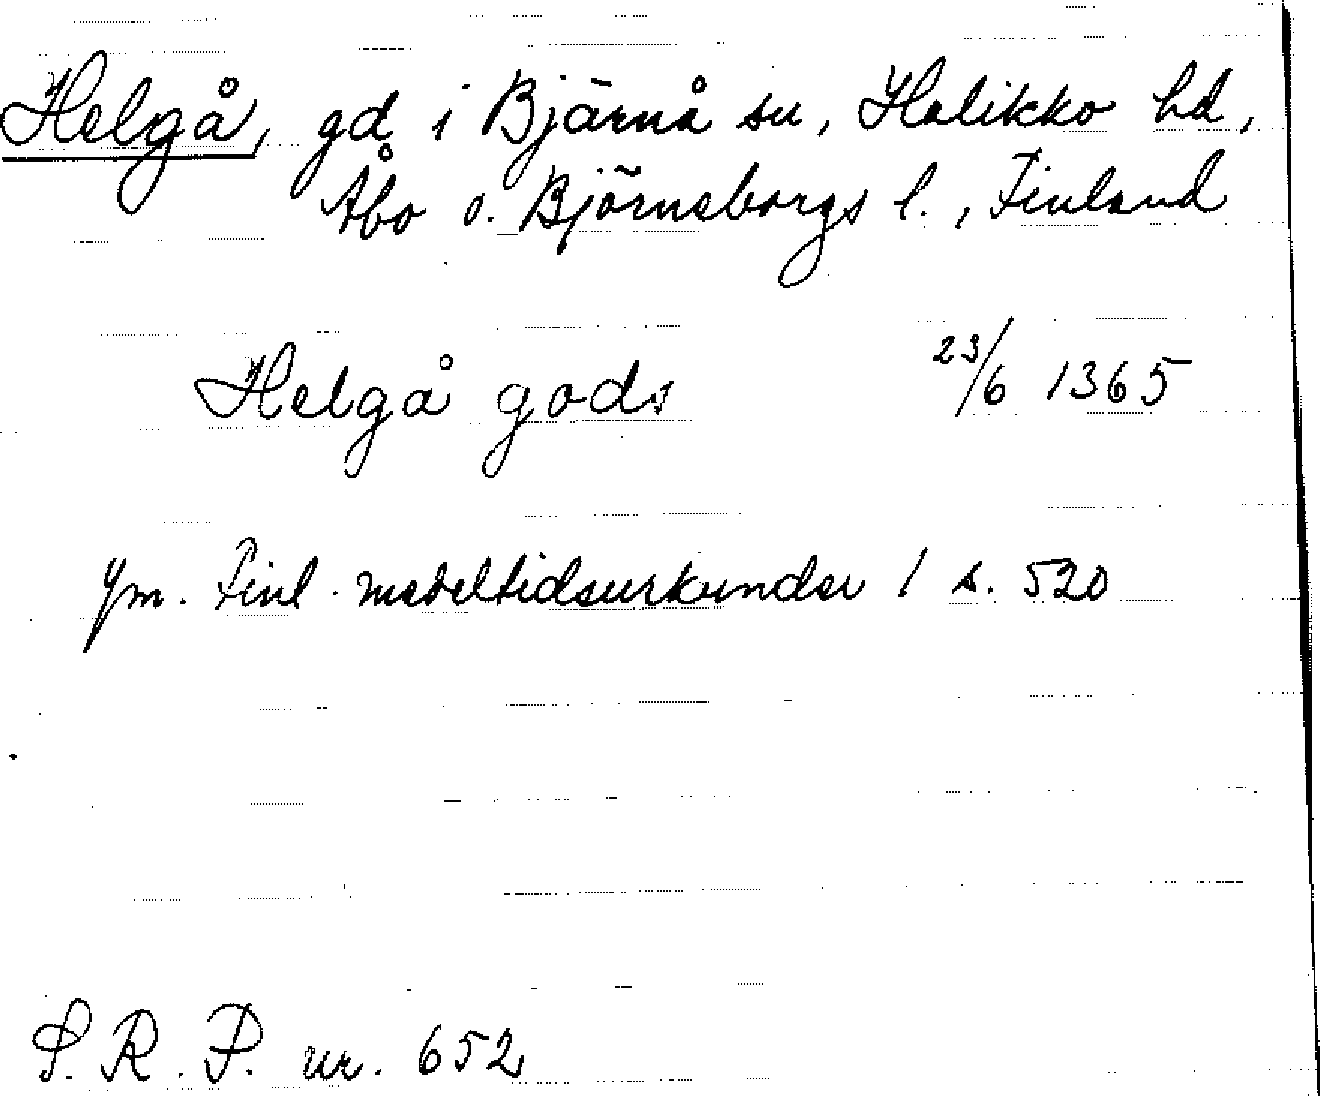 Helgå, gd i Bjärnå sn, Halikko hd,
Åbo o. Björneborgs l., Finland
Helgå gods 23/6 1365
Jm. Finl. medeltidsurkunder 1 s. 520
S. R. P. nr. 652